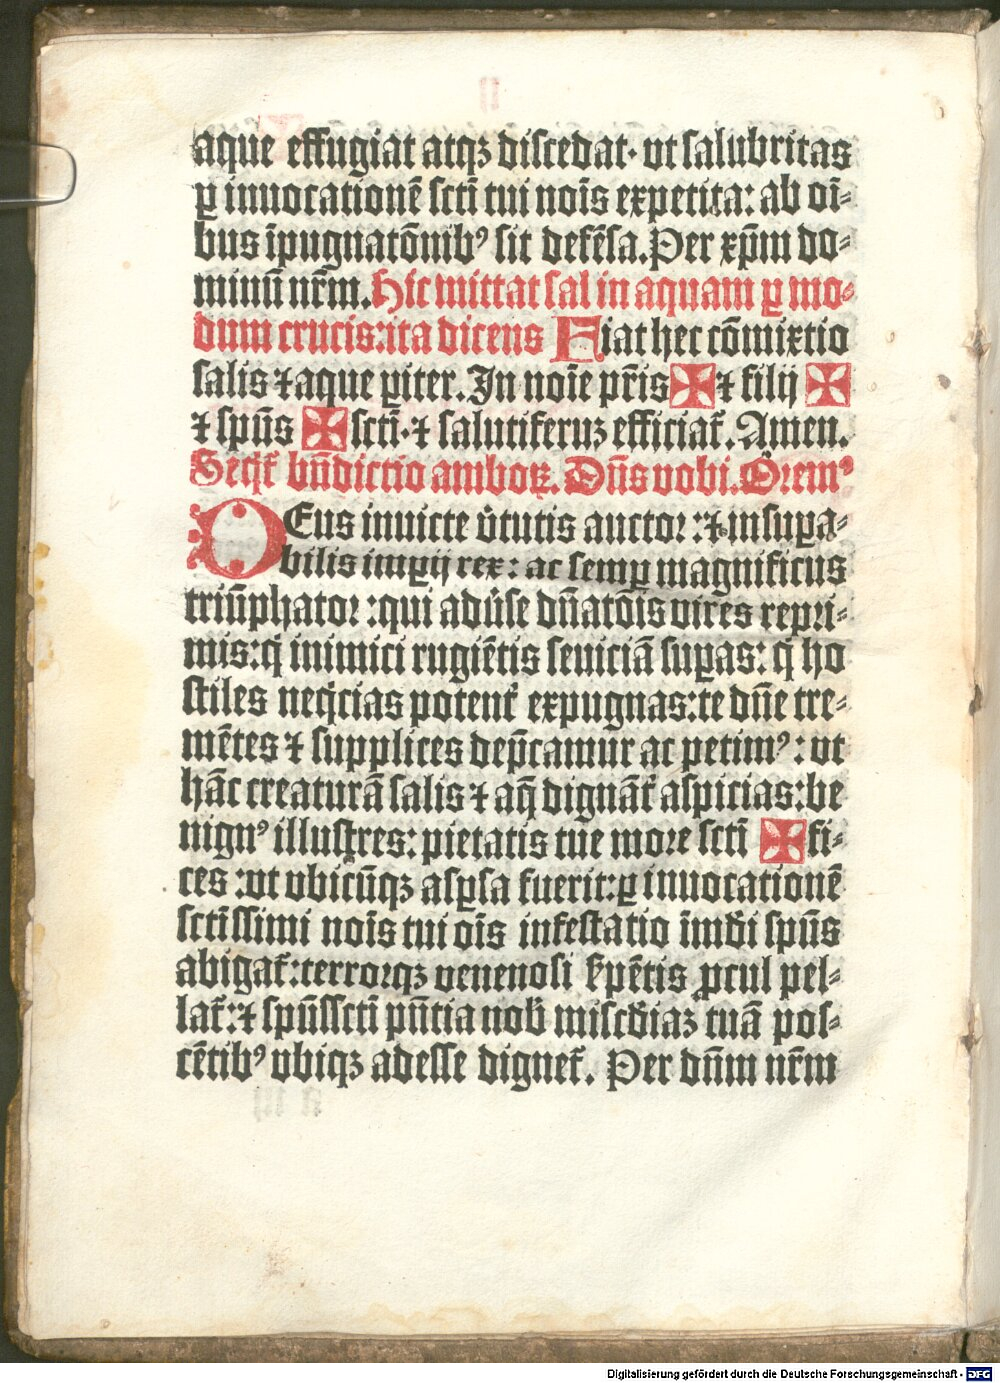 aque effugiat atqꝫ discedat· vt salubritas
ꝑ inuocationē scti̅ tui noi̅s expetita: ab oi̅⸗
bus īpugnatōnibꝰ sit defēsa. Per xp̅m do⸗
minū nr̅m. Hic mittat sal in aquam ꝑ mo⸗
dum crucis: ita dicens Fiat hec cōmixtio
salis ⁊ aque ꝑiter. In noi̅e pr̅is ✠ ⁊ filij ✠
⁊ spūs ✠ scti̅· ⁊ salutiferuꝫ efficiat᷑. Amen.
Seq̇t᷑ bn̅dictio amboꝝ. Dn̅s vobi. Oremꝰ
DEus inuicte v̓tutis auctor: ⁊ insuꝑa⸗
bilis imꝑij rex: ac semꝑ magnificus
triūphator: qui adv̓se dn̅atōis vires repri⸗
mis: q̇ inimici rugiētis seuiciā suꝑas: q̇ ho
stiles neq̇cias potent᷑ expugnas: te dn̅e tre⸗
mētes ⁊ supplices dep̅camur ac petimꝰ: vt
hāc creaturā salis ⁊ aq̄ dignāt᷑ aspicias: be
nignꝰ illustres: pietatis tue more scti̅ ✠ fi⸗
ces: vt vbicūqꝫ asꝑsa fuerit: ꝑ inuocationē
scti̅ssimi noi̅s tui oi̅s infestatio īmūdi spūs
abigat᷑: terrorqꝫ venenosi s̓pētis ꝓcul pel⸗
lat᷑: ⁊ spūsscti̅ pn̅tia nob̓ mis̅cdiaꝫ tuā pos⸗
cētibꝰ vbiqꝫ adesse dignet᷑. Per dn̅m nr̅m
Digitalisierung gefördert durch die Deutsche Forschungsgemeinschaft - DFG